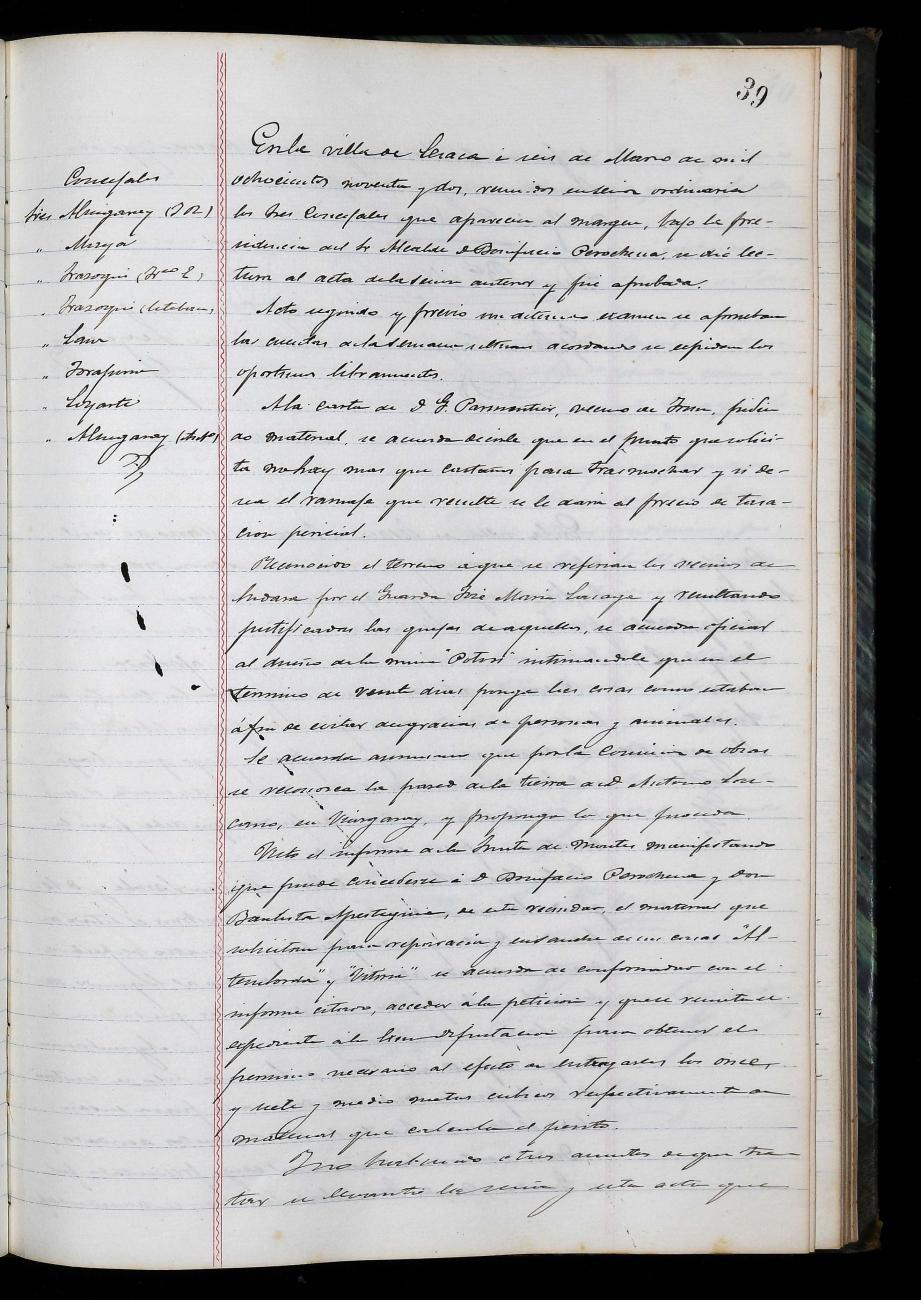 39
Concejales
Sres Almigaray (J M)
" Moya
" Irazoqui (Fco E)
" Irazoqui (Esteban)
" Sanz
"
" Loyarte
" Almigaray (Anto)
En la villa de Lesaca á seis de Marzo de mil
ochocientos noventa y dos, reunidos en sesion ordinaria
los Sres Concejales que aparecen al margen, bajo la pre-
sidencia del Sr Alcalde D Bonifacio Perochena, se dió lec-
tura al acta de la sesion anterior y fué aprobada.
Acto seguido y previo un detenido examen se aprueban
las cuentas de la semana ultima acordando se expidan los
oportunos libramientos.
A la carta de D G. Parmentier, vecino de Irun, pidien
do material, se acuerda decirle que en el punto que solici-
ta no hay mas que castaños para trasmochar y si de-
sea el ramaje que resulte se le dará al precio de tasa-
cion pericial.
Reconocido el terreno á que se referian los vecinos de
por el Guarda José Maria y resultando
justificadas las quejas de aquellos, se acuerda oficiar
al dueño de la mina "Potosi" intimandole que en el
termino de veinte dias ponga las cosas como estaban
á fin de evitar desgracias de personas y animales.
Se acuerda asimismo que por la Comision de obras
se reconozca la pared de la tierra de D Antonio
en y proponga lo que proceda
Visto el informe de la Junta de Montes manifestando
que puede concederse á D Bonifacio Perochena y Don
Bautista Apesteguia, de esta vecindad, el material que
solicitan para reparacion y ensanche de sus casas "Al-
temborda" y "Vitoria" se acuerda de conformidad con el
informe citado, acceder á la peticion y que se remita el
expediente á la Exma Diputacion para obtener el
permiso necesario al efecto de entregarles los once,
y siete y medio metros cubicos respectivamente de
maderas que calcula el perito.
Y no habiendo otros asuntos de que tra-
tar se levantó la sesion y esta acta que